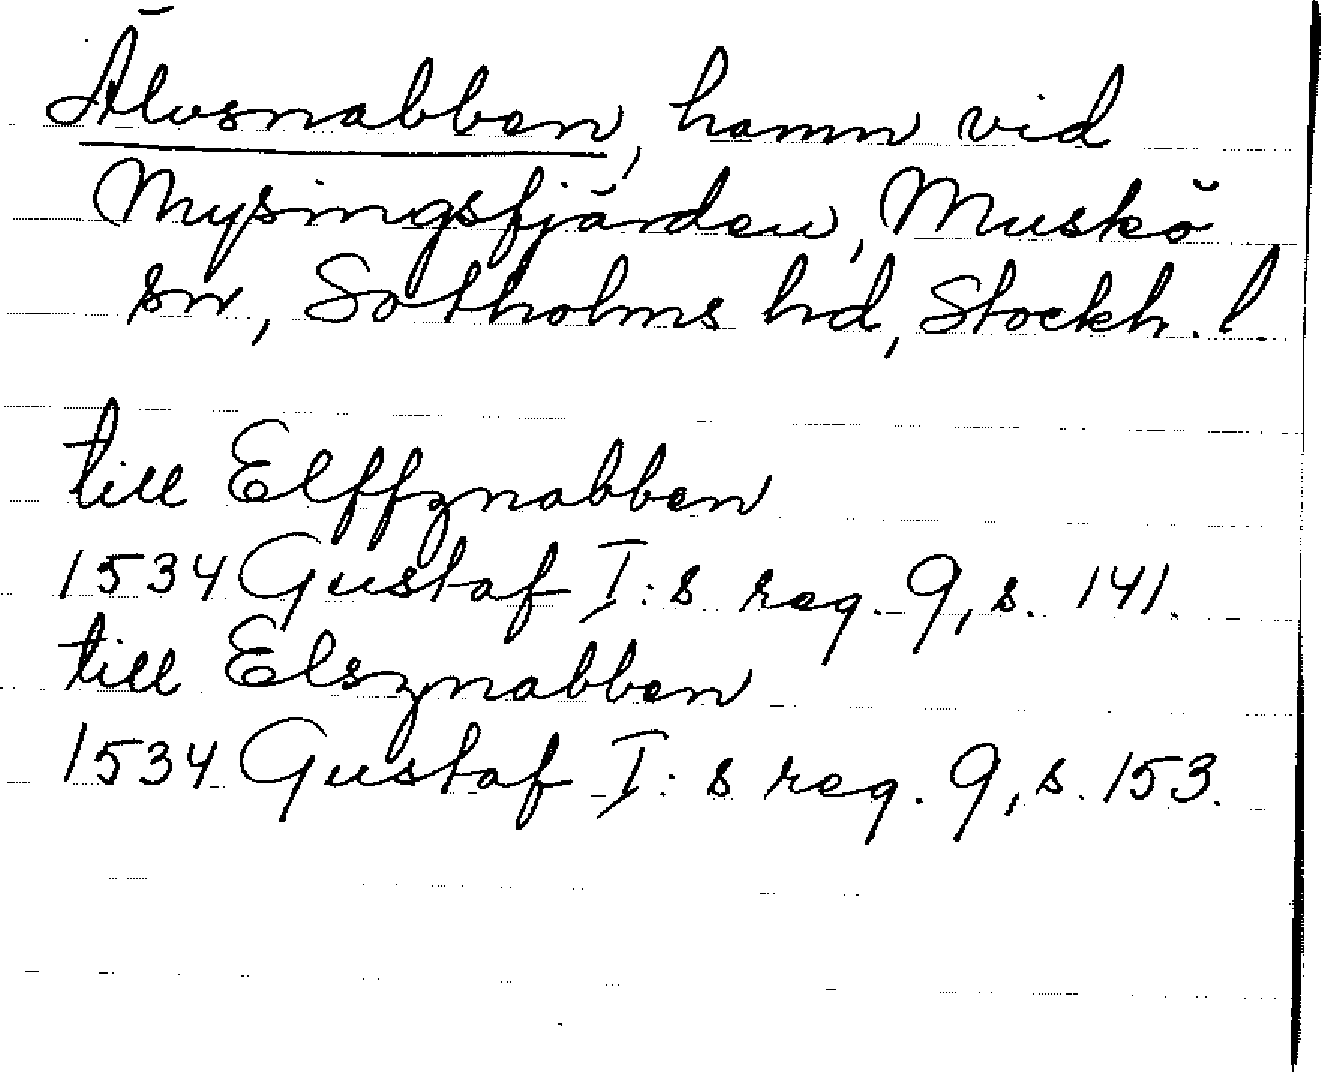 Älvsnabben, hamn vid
Mysingsfjärden, Muskö
sn, Sotholms hd, Stockh. l.
till Elffznabben
1534 Gustaf I:s reg. 9, s. 141.
till Elsznabben
1534 Gustaf I:s reg. 9, s. 153.